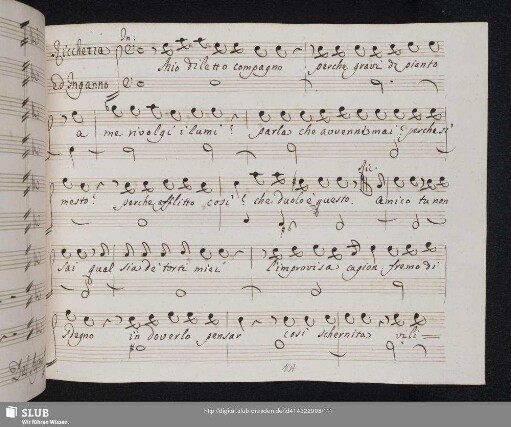 In:
Ricchezza
Ed Inganno
Mio diletto compagno perche gravi di pianto
a me rivolgi i lumi? parla che avvenne mai? perche si
mesto? perche afflitto così? che duolo è questo. Amico tu non
sai qual sia de torti miei l'improvisa cagion fremo di
sdegno in doverlo pensar così schernita vili=
SLUB
Wir führen Wissen.